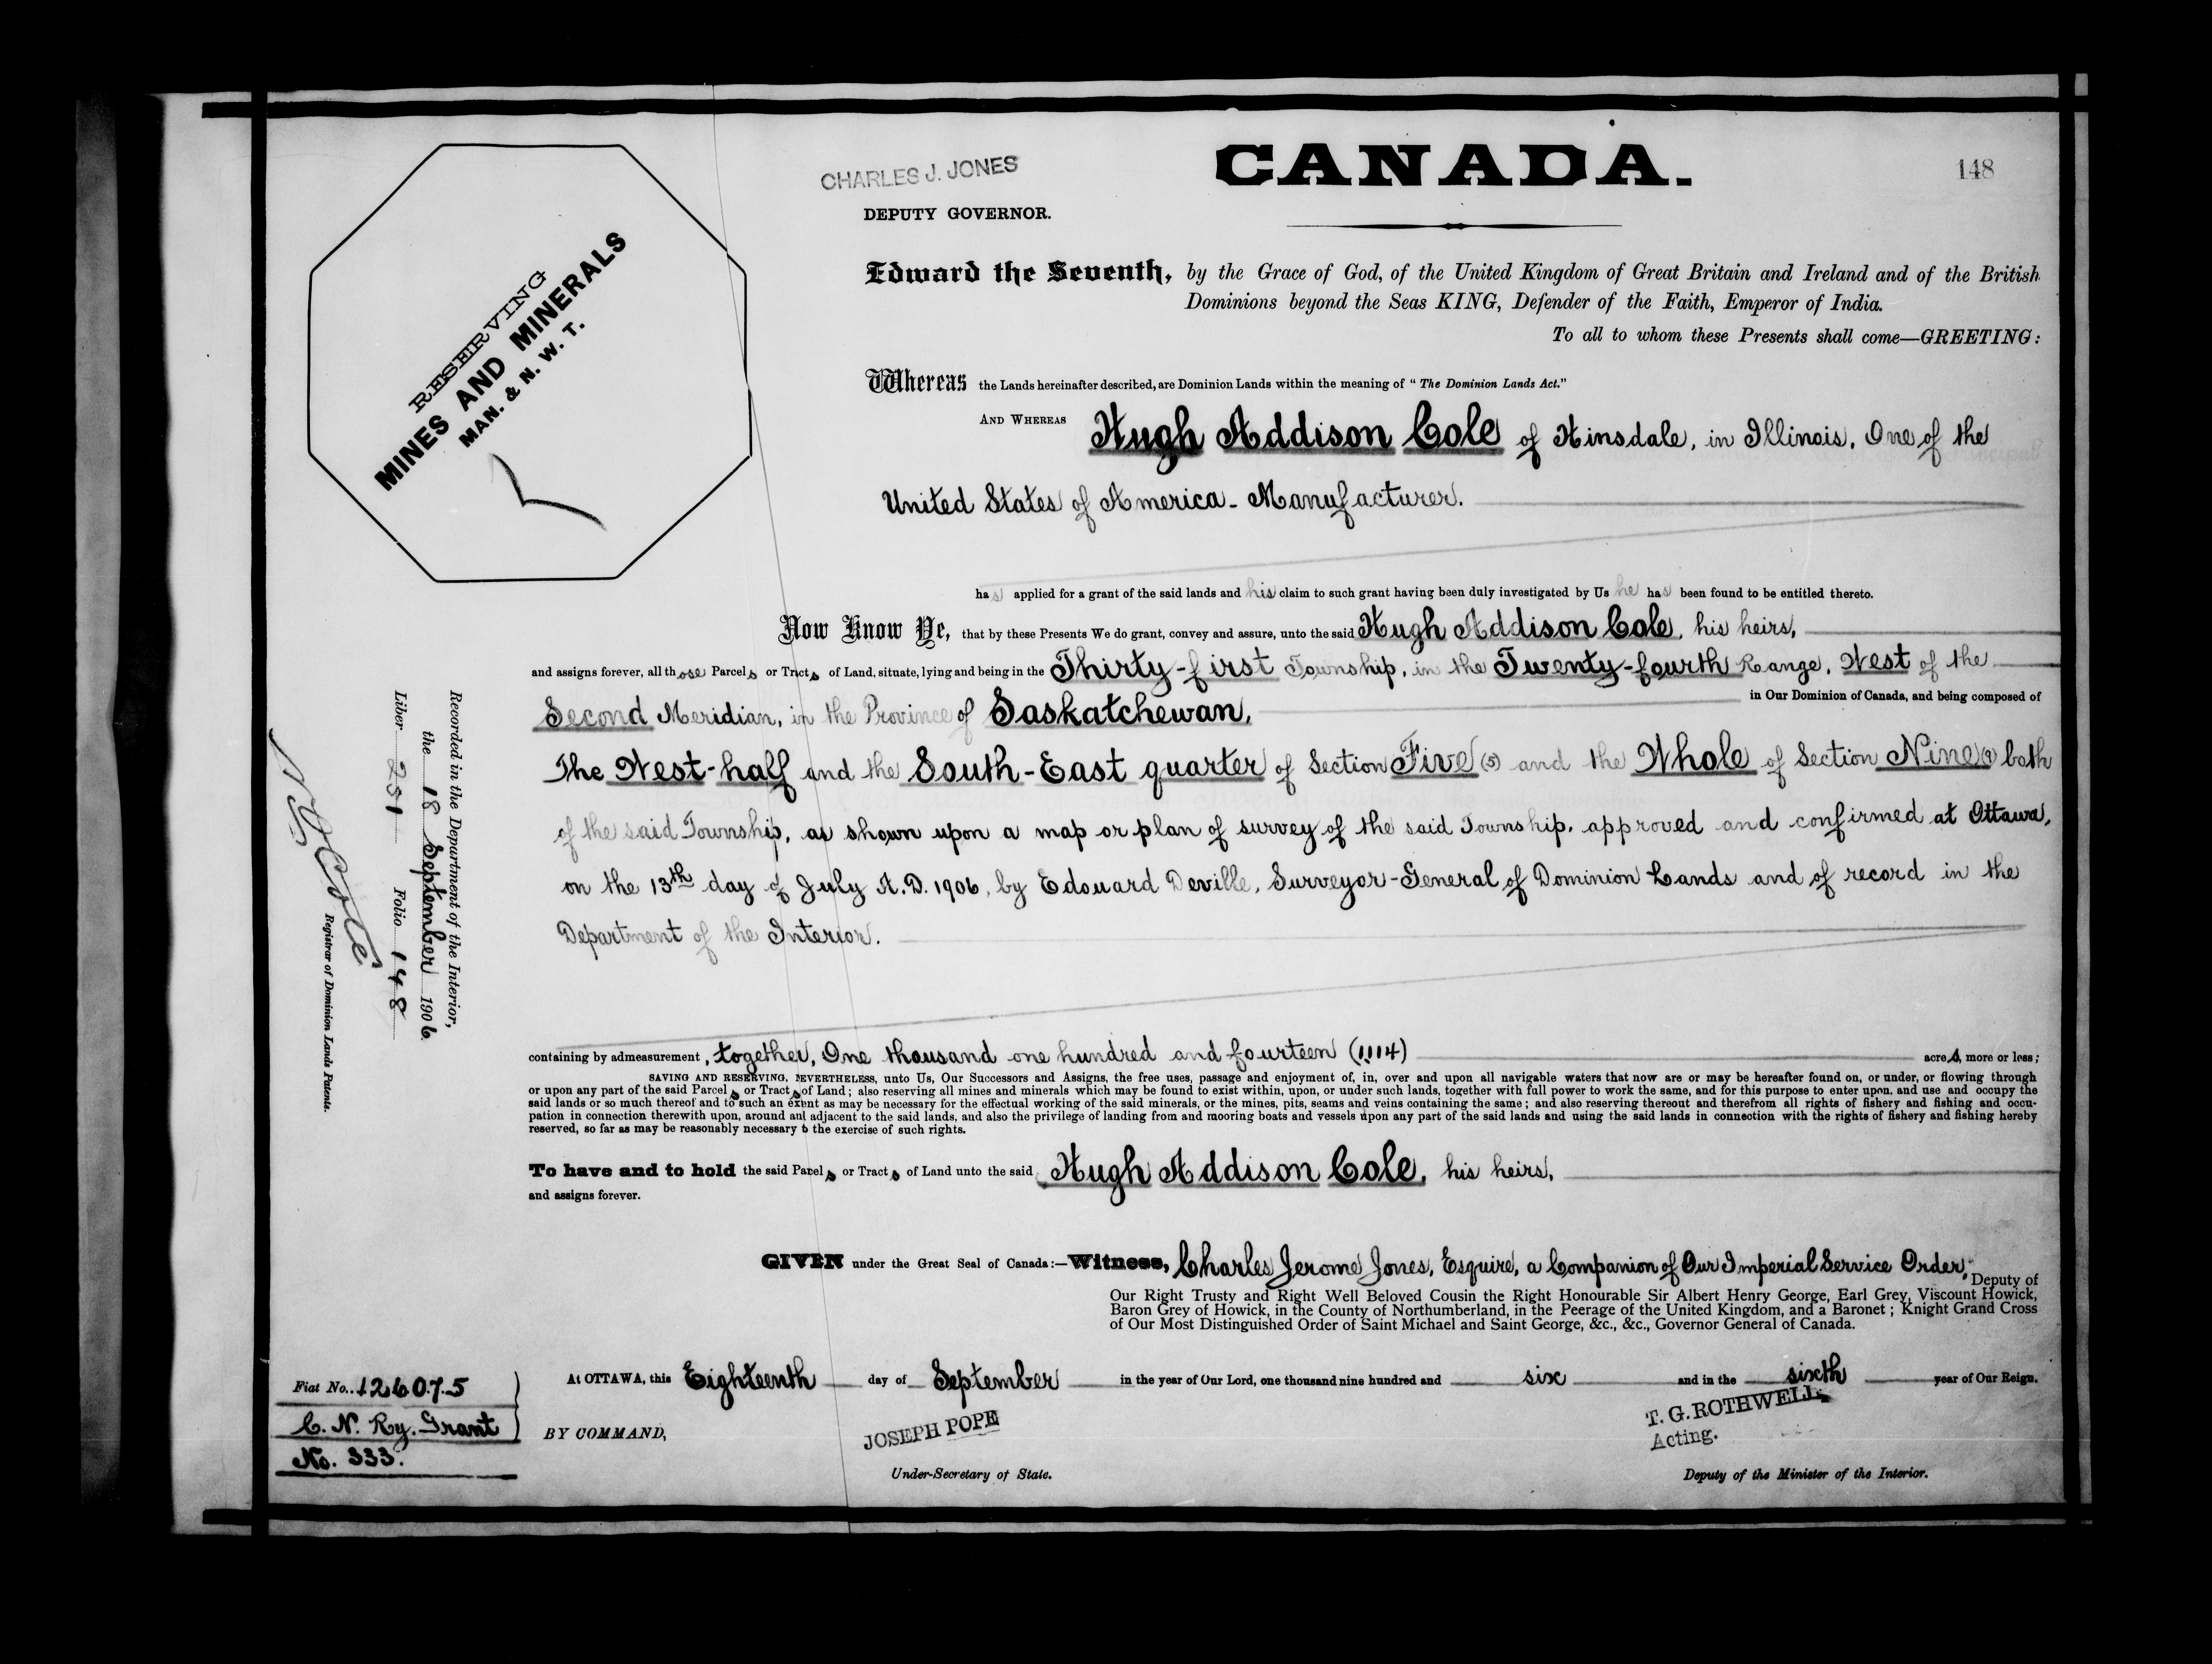 CHARLES J. JONES
DEPUTY GOVERNOR.
CANADA.
148
RESERVING
MINES AND MINERALS
MAN. & N. W. T.
Edward the Seventh, by the Grace of God, of the United Kingdom of Great Britain and Ireland and of the British
Dominions beyond the Seas KING, Defender of the Faith, Emperor of India.
To all to whom these Presents shall come—GREETING:
Whereas the Lands hereinafter described, are Dominion Lands within the meaning of "The Dominion Lands Act."
AND WHEREAS Hugh Addison Cole of Hinsdale, in Illinois, One of the
United States of America - Manufacturer.
has applied for a grant of the said lands and his claim to such grant having been duly investigated by Us he has been found to be entitled thereto.
Now Know Ye, that by these Presents We do grant, convey and assure, unto the said Hugh Addison Cole, his heirs,
and assigns forever, all those Parcels or Tracts of Land, situate, lying and being in the Thirty-first Township, in the Twenty-fourth Range, West of the
Second Meridian, in the Province of Saskatchewan, in Our Dominion of Canada, and being composed of
The West-half and the South-East quarter of Section Five (5) and the Whole of Section Nine (9) both
of the said Township, as shown upon a map or plan of survey of the said Township, approved and confirmed at Ottawa,
on the 13th day of July A.D. 1906, by Edouard Deville, Surveyor-General of Dominion Lands and of record in the
Department of the Interior.
containing by admeasurement, together, One thousand one hundred and fourteen (1114) acres, more or less;
SAVING AND RESERVING, NEVERTHELESS, unto Us, Our Successors and Assigns, the free uses, passage and enjoyment of, in, over and upon all navigable waters that now are or may be hereafter found on, or under, or flowing through
or upon any part of the said Parcels or Tracts of Land; also reserving all mines and minerals which may be found to exist within, upon, or under such lands, together with full power to work the same, and for this purpose to enter upon, and use and occupy the
said lands or so much thereof and to such an extent as may be necessary for the effectual working of the said minerals, or the mines, pits, seams and veins containing the same; and also reserving thereout and therefrom all rights of fishery and fishing and occu-
pation in connection therewith upon, around and adjacent to the said lands, and also the privilege of landing from and mooring boats and vessels upon any part of the said lands and using the said lands in connection with the rights of fishery and fishing hereby
reserved, so far as may be reasonably necessary to the exercise of such rights.
To have and to hold the said Parcels or Tracts of Land unto the said Hugh Addison Cole, his heirs,
and assigns forever.
GIVEN under the Great Seal of Canada:—Witness, Charles Jerome Jones, Esquire, a Companion of Our Imperial Service Order, Deputy of
Our Right Trusty and Right Well Beloved Cousin the Right Honourable Sir Albert Henry George, Earl Grey, Viscount Howick,
Baron Grey of Howick, in the County of Northumberland, in the Peerage of the United Kingdom, and a Baronet; Knight Grand Cross
of Our Most Distinguished Order of Saint Michael and Saint George, &c., &c., Governor General of Canada.
At OTTAWA, this Eighteenth day of September in the year of Our Lord, one thousand nine hundred and six and in the sixth year of Our Reign.
BY COMMAND,
JOSEPH POPE
Under-Secretary of State.
T. G. ROTHWELL
Acting.
Deputy of the Minister of the Interior.
Recorded in the Department of the Interior,
the 18 September 1906
Liber 251 Folio 148
N O Coté
Registrar of Dominion Lands Patents.
Fiat No. 126075
C. N. Ry. Grant
No. 333.